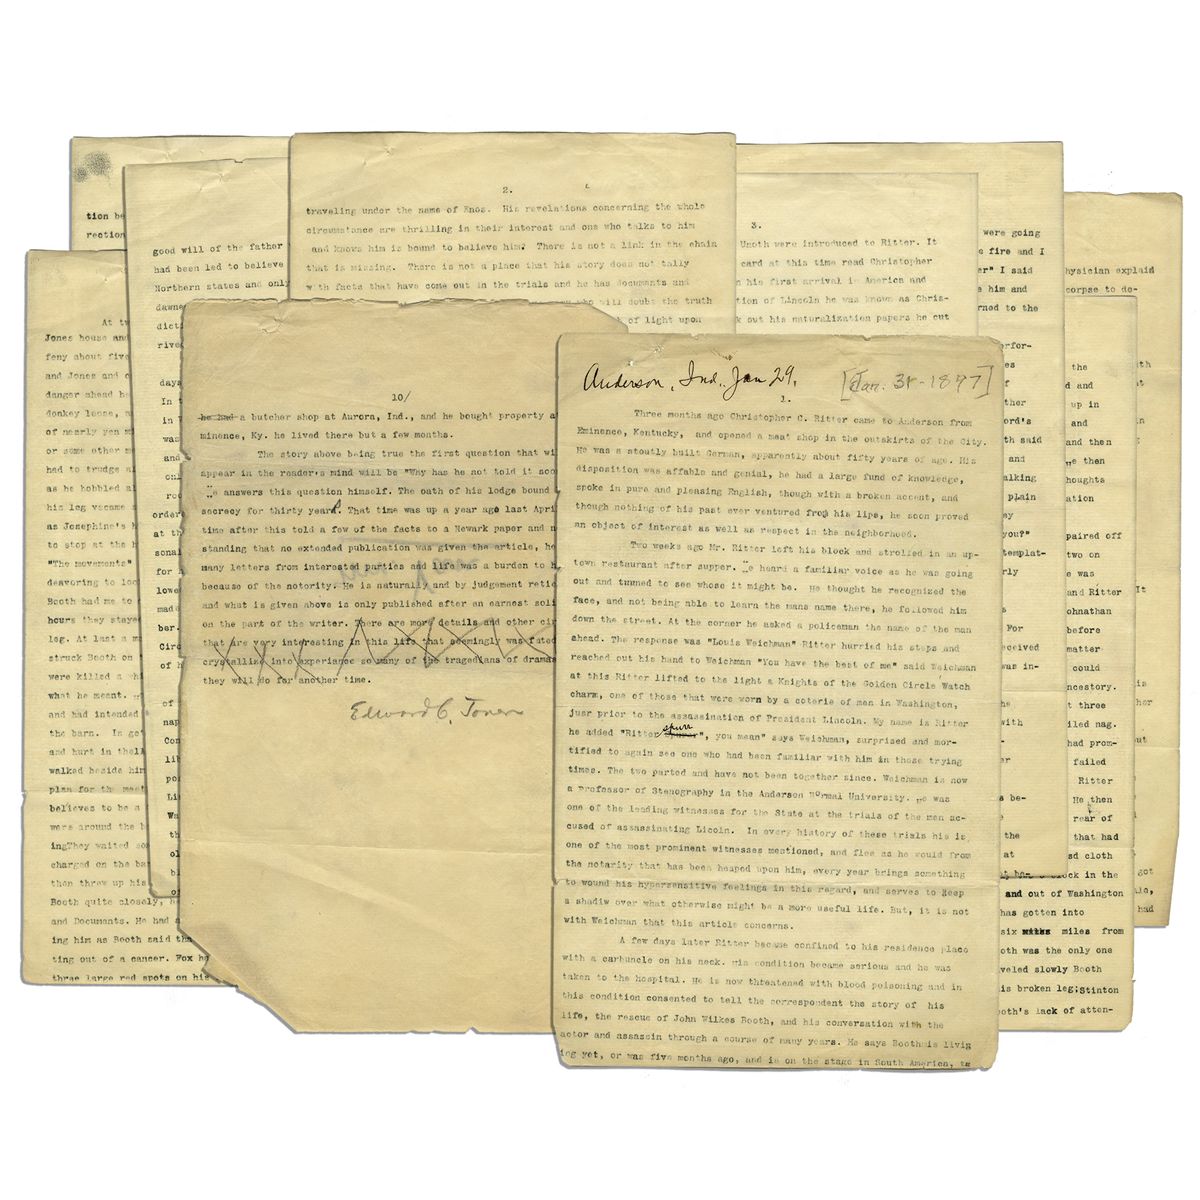 tion be
rection
good will of the father
had been led to believe
Northern states and only
dawne
dict
rive
days
In t
in W
was
and
onl
roo
order
at th
sonal
for h
lowe
made
ber.
Circ
of h
of
nap
Con
lib
po
Li
Wa
th
ol
bl
2.
traveling under the name of Enos. His revelations concerning the whole
circumstance are thrilling in their interest and one who talks to him
and knows him is bound to believe him. There is not a link in the chain
that is missing. There is not a place that his story does not tally
with facts that have come out in the trials and he has documents and
who will doubt the truth
of light upon
3.
Unoth were introduced to Ritter. It
card at this time read Christopher
n his first arrival in America and
tion of Lincoln he was known as Chris-
k out his naturalization papers he cut
were going
e fire and I
er" I said
e him and
rned to the
erfor-
es
f
ther
ord's
th said
and
alking
plain
ey
you?"
templat-
rly
For
eceived
was in-
he
with
s be-
the
at
hysician explain
corpse to de-
the
d and
up in
and
and then
he then
houghts
ation
paired off
two on
e was
and Ritter
Johnathan
before
matter
could
ncestory.
t three
iled nag.
had prom-
failed
Ritter
He then
rear of
that had
sd cloth
lock in the
and out of Washington
has gotten into
six miles miles from
oth was the only one
veled slowly Booth
is broken leg;Stinton
ooth's lack of atten-
At tw
Jones house and
feny about five
and Jones and o
danger ahead be
donkey loose, a
of nearly yen mi
or some other m
had to trudge al
as he hobbled al
his leg vacame s
as Josephine's h
to stop at the h
"The movements"
deavoring to loo
Booth had me to
hours they staye
leg. At last a m
struck Booth on
were killed a whi
what he meant.
and had intended
the barn. In get
and hurt in the
walked beside him
plan for the meet
believes to be a
were around the b
ingThey waited so
charged on the ba
then threw up his
Booth quite closely, he
and Documents. He had a
ing him as Booth said tha
ting out of a cancer. Fox he
three large red spots on his
10/
he had a butcher shop at Aurora, Ind., and he bought property a
minence, Ky. he lived there but a few months.
The story above being true the first question that wi
appear in the reader's mind will be "Why has he not told it soo
He answers this question himself. The oath of his lodge bound
secrecy for thirty years. That time was up a year ago last Apri
time after this told a few of the facts to a Newark paper and n
standing that no extended publication was given the article, he
many letters from interested parties and life was a burden to h
because of the notority. He is naturally and by judgement retic
and what is given above is only published after an earnest soli
on the part of the writer. There are more details and other cir
that are very interesting in this life that seemingly was fated
crystallize into experiance so many of the tragedians of dramas
they will do for another time.
Edward C. Toner
Anderson, Ind., Jan 29, [Jan. 31-1897]
1.
Three months ago Christopher C. Ritter came to Anderson from
Eminence, Kentucky, and opened a meat shop in the outskirts of the City.
He was a stoutly built German, apparently about fifty years of age. His
disposition was affable and genial, he had a large fund of knowledge,
spoke in pure and pleasing English, though with a broken accent, and
though nothing of his past ever ventured from his lips, he soon proved
an object of interest as well as respect in the neighborhood.
Two weeks ago Mr. Ritter left his block and strolled in an up-
town restaurant after supper. He heard a familiar voice as he was going
out and turned to see whose it might be. He thought he recognized the
face, and not being able to learn the mans name there, he followed him
down the street. At the corner he asked a policaman the name of the man
ahead. The response was "Louis Weichman" Ritter hurried his steps and
reached out his hand to Weichman "You have the best of me" said Weichman
at this Ritter lifted to the light a Knights of the Golden Circle Watch
charm, one of those that were worn by a coterie of men in Washington,
jusr prior to the assassination of President Lincoln. My name is Ritter
he added "Ritter spurr", you mean" says Weichman, surprised and mor-
tified to again see one who had been familiar with him in those trying
times. The two parted and have not been together since. Weichman is now
a Professor of Stenography in the Anderson Normal University. He was
one of the leading witnesses for the State at the trials of the men ac-
cused of assassinating Licoln. In every history of these trials his is
one of the most prominent witnesses mentioned, and flees as he would from
the notarity that has been heaped upon him, every year brings something
to wound his hypersensitive feelings in this regard, and serves to keep
a shadiw over what otherwise might be a more useful life. But, it is not
with Weichman that this article concerns.
A few days later Ritter became confined to his residence place
with a carbuncle on his neck. His condition became serious and he was
taken to the hospital. He is now threatened with blood poisoning and in
this condition consented to tell the correspondent the story of his
life, the rescue of John Wilkes Booth, and his conversation with the
actor and assassin through a course of many years. He says Booth is livin
ing yet, or was five months ago, and is on the stage in South America, ta